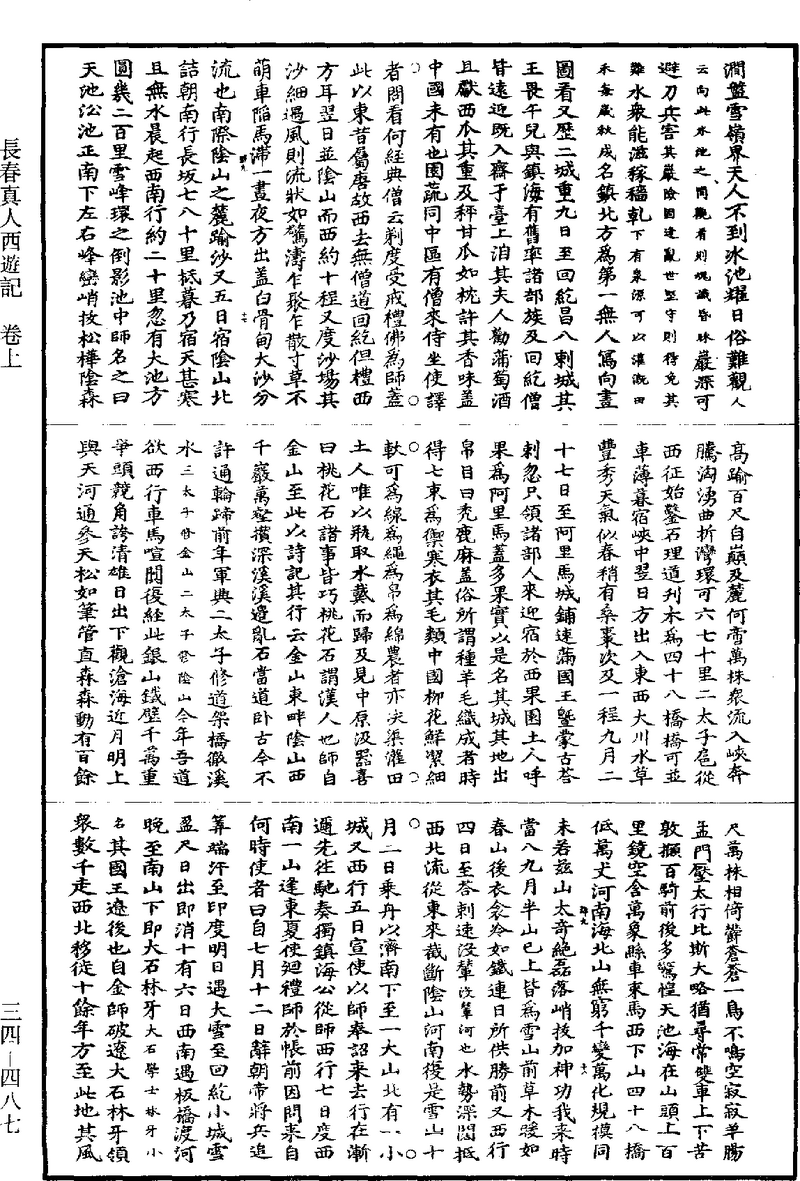 澗盤雪嶺界天人不到冰池耀日俗難觀人
云向此冰池之間觀看則魂識昏昧巖深可
避刀兵害其巖險固逢亂世堅守則得免其
難水衆能滋稼穡乾下有泉源可以灌溉田
禾每歲秋成名鎮北方為第一無人寫向畫
圖看又歷二城重九日至回紇昌八剌城其
王畏午兒與鎮海有舊率諸部族及回紇僧
皆遠迎既入齋于臺上洎其夫人勸蒲萄酒
且獻西瓜其重及秤甘瓜如枕許其香味蓋
中國未有也園蔬同中區有僧來侍坐使譯
者問看何經典僧云剃度受戒禮佛為師蓋
此以東昔屬唐故西去無僧道回紇但禮西
方耳翌日並陰山而西約十程又度沙場其
沙細遇風則流狀如驚濤乍聚乍散寸草不
萌車陷馬滯一晝夜方出蓋白骨甸大沙分
流也南際陰山之麓踰沙又五日宿陰山北
詰朝南行長坂七八十里抵暮乃宿天甚寒
且無水晨起西南行約二十里忽有大池方
圓幾二百里雪峰環之倒影池中師名之曰
天池沿池正南下左右峰巒峭拔松樺陰森
高踰百尺自巔及麓何啻萬株衆流入峽奔
騰洶湧曲折灣環可六七十里二太子扈從
西征始鑿石理道刊木為四十八橋橋可並
車薄暮宿峽中翌日方出入東西大川水草
豐秀天氣似春稍有桑棗次及一程九月二
十七日至阿里馬城鋪速滿國王暨蒙古荅
剌忽只領諸部人來迎宿於西果園土人呼
果為阿里馬蓋多果實以是名其城其地出
帛目曰禿鹿麻蓋俗所謂種羊毛織成者時
得七束為禦寒衣其毛類中國柳花鮮潔細
軟可為線為繩為帛為綿農者亦決渠灌田
土人唯以瓶取水戴而歸及見中原汲器喜
曰桃花石諸事皆巧桃花石謂漢人也師自
金山至此以詩記其行云金山東畔陰山西
千巖萬壑攢深溪溪邊亂石當道臥古今不
許通輪蹄前年軍興二太子修道架橋徹溪
水三太子修金山二太子修陰山今年吾道
欲西行車馬喧闐復經此銀山鐵壁千萬重
爭頭競角誇清雄日出下觀滄海近月明上
與天河通參天松如筆管直森森動有百餘
尺萬株相倚鬱蒼蒼一鳥不鳴空寂寂羊腸
孟門壓太行比斯大略猶尋常雙車上下苦
敦攧百騎前後多驚惶天池海在山頭上百
里鏡空含萬象縣車束馬西下山四十八橋
低萬丈河南海北山無窮千變萬化規模同
未若茲山太奇絕磊落峭拔加神功我來時
當八九月半山已上皆為雪山前草木暖如
春山後衣衾冷如鐵連日所供勝前又西行
四日至荅剌速沒輦沒輦河也水勢深闊抵
西北流從東來截斷陰山河南復是雪山十
月二日乘舟以濟南下至一大山北有一小
城又西行五日宣使以師奉詔來去行在漸
邇先往馳奏獨鎮海公從師西行七日度西
南一山逢東夏使迴禮師於帳前因問來自
何時使者曰自七月十二日辭朝帝將兵追
筭端汗至印度明日遇大雪至回紇小城雪
盈尺日出即消十有六日西南過板橋渡河
晚至南山下即大石林牙大石學士林牙小
名其國王遼後也自金師破遼大石林牙領
衆數千走西北移徙十餘年方至此地其風
長春真人西遊記 卷上
三四—四八七